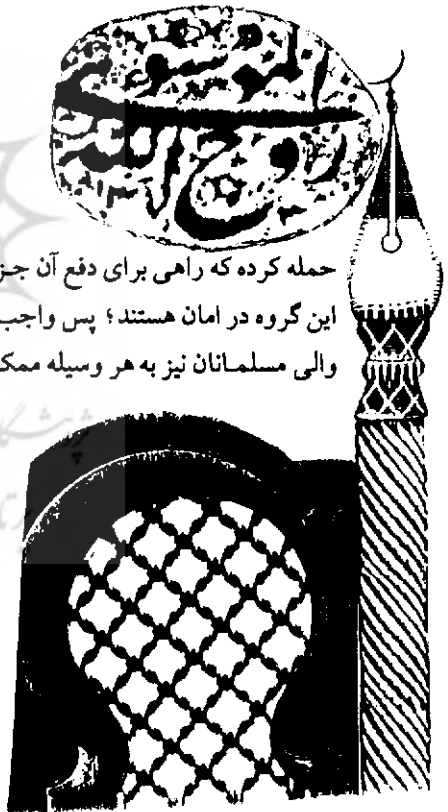 الموسوی
روح الله
حمله کرده که راهی برای دفع آن جز
این گروه در امان هستند؛ پس واجب
والی مسلمانان نیز به هر وسیله ممک